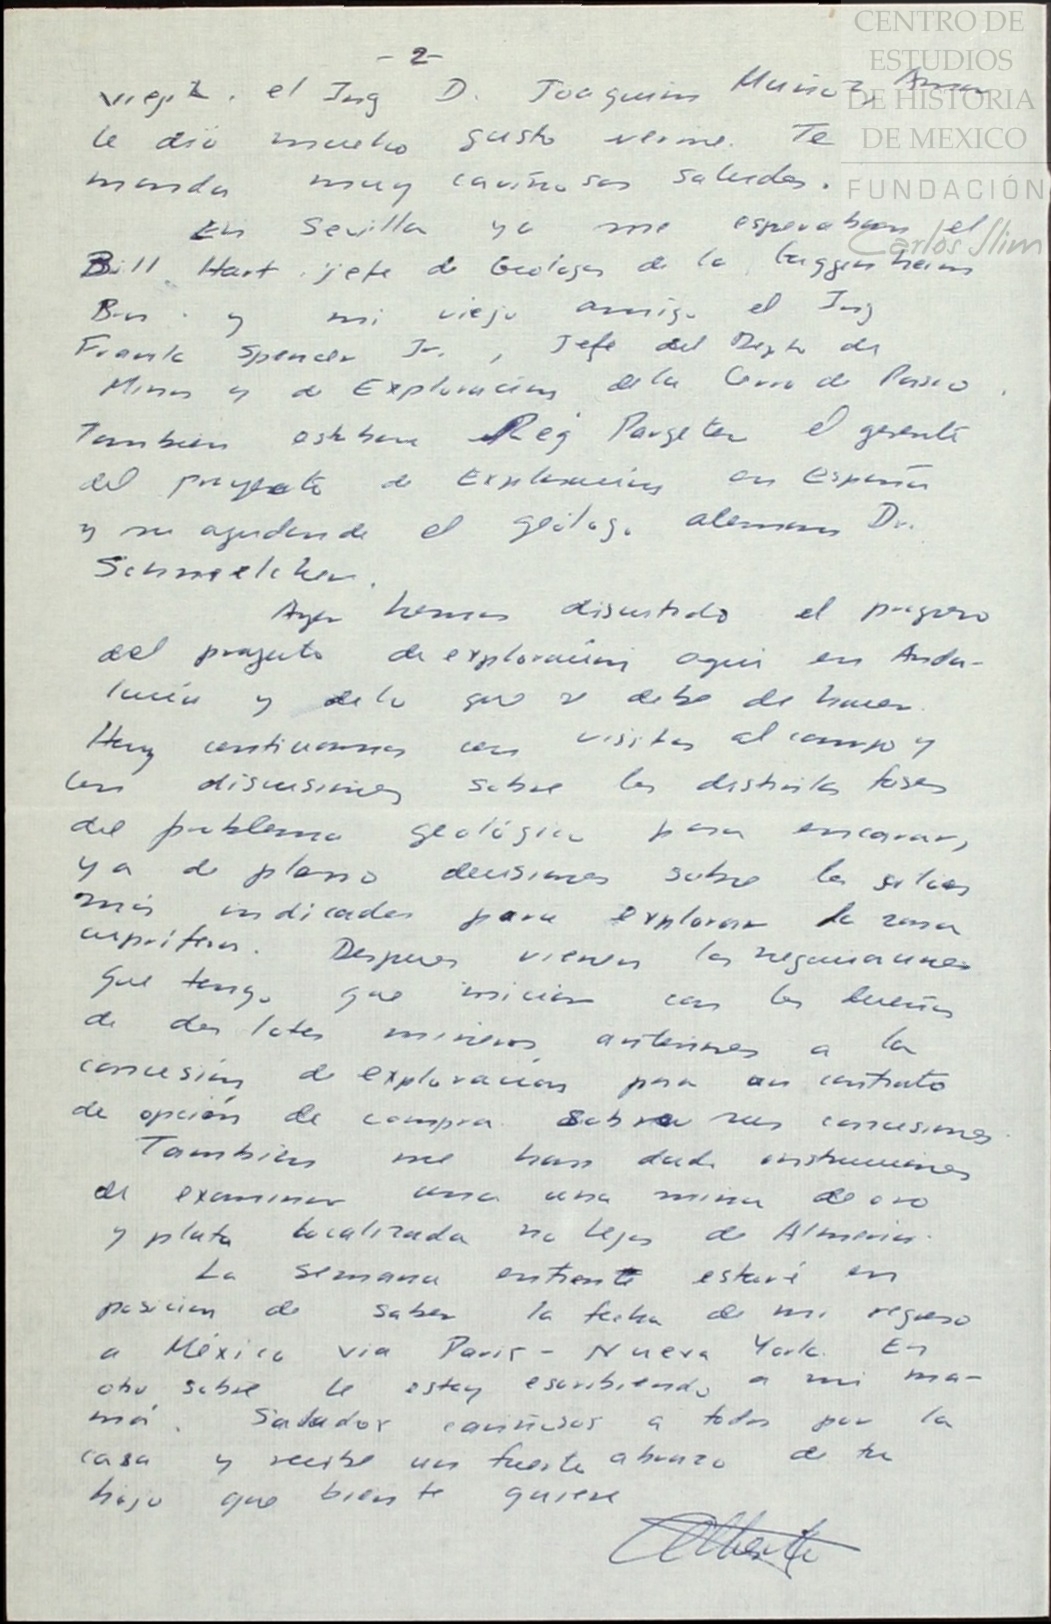 CENTRO DE
ESTUDIOS
DE HISTORIA
DE MEXICO
FUNDACIÓN
Carlos Slim
-2-
el Ing D. Joaquin Muñoz
le dio mucho gusto verme. Te
manda muy cariñosos saludos.
En Sevilla ya me esperaban el
Bill Hart jefe de Geologos de la Guggenheim
Bros. y mi viejo amigo el Ing
Frank Spencer Jr., Jefe del Depto de
Minas y de Exploracion de la Cerro de Pasco.
Tambien estaban Reg Pargeter el gerente
del proyecto de Exploracion en España
y su ayudande el geólogo aleman Dr.
Schmelcher.
Ayer hemos discutido el progreso
del proyecto de exploración aqui en Anda-
lucia y de lo que se debe de hacer.
Hoy continuamos con visitas al campo y
con discusiones sobre las distintas fases
del problema geológico para encarar,
ya de plano decisiones sobre los sitios
más indicados para explorar la zona
cuprifera. Despues vienen las negociaciones
que tengo que iniciar con los dueños
de dos lotes mineros anteriores a la
concesión de exploración para un contrato
de opción de compra sobre sus concesiones.
Tambien me han dado instrucciones
de examinar una una mina de oro
y plata localizada no lejos de Almeria.
La semana entrante estaré en
posicion de saber la fecha de mi regreso
a México via Paris - Nueva York. En
otro sobre le estoy escribiendo a mi ma-
má. Saludos cariñosos a todos por la
casa y recibe un fuerte abrazo de tu
hijo que bien te quiere
Alberto